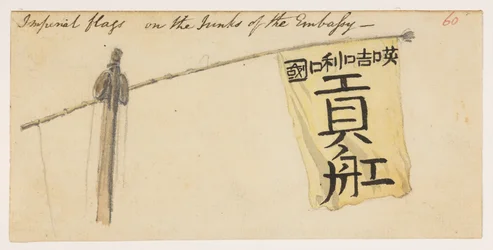 Imperial flags on the Junks of the Embassy —
60
𠸄咭唎國
貢舡